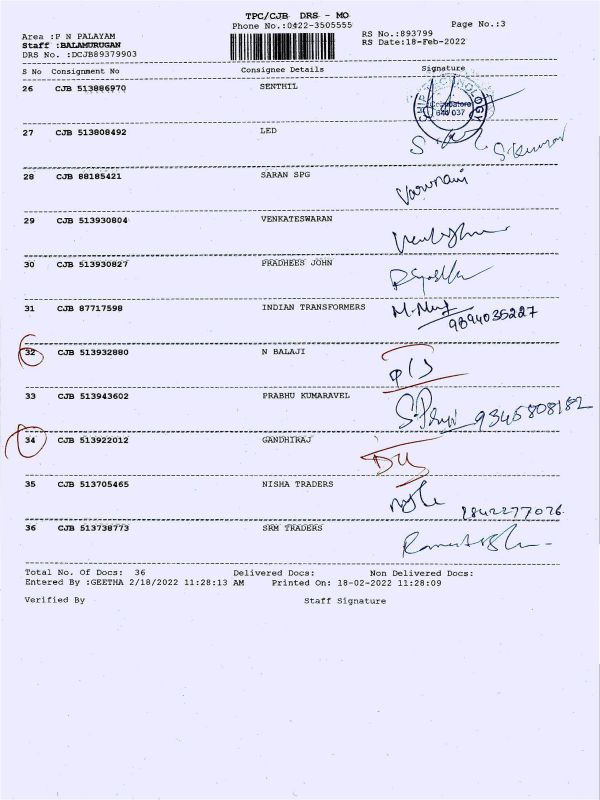 TPC/CJB DRS - MO
Phone No.:0422-3505555
Page No.:3
Area :P N PALAYAM
RS No.:893799
Staff :BALAMURUGAN
RS Date:18-Feb-2022
DRS No. :DCJB89379903
S No Consignment No Consignee Details Signature
26 CJB 513886970 SENTHIL
CHIP TECHNOLOGY
Coimbatore
641 037
27 CJB 513808492 LED
S. Kumar
28 CJB 88185421 SARAN SPG
29 CJB 513930804 VENKATESWARAN
30 CJB 513930827 PRADHEES JOHN
31 CJB 87717598 INDIAN TRANSFORMERS
9894035227
32 CJB 513932880 N BALAJI
33 CJB 513943602 PRABHU KUMARAVEL
9345808182
34 CJB 513922012 GANDHIRAJ
35 CJB 513705465 NISHA TRADERS
36 CJB 513738773 SRM TRADERS
Total No. Of Docs: 36 Delivered Docs: Non Delivered Docs:
Entered By :GEETHA 2/18/2022 11:28:13 AM Printed On: 18-02-2022 11:28:09
Verified By Staff Signature